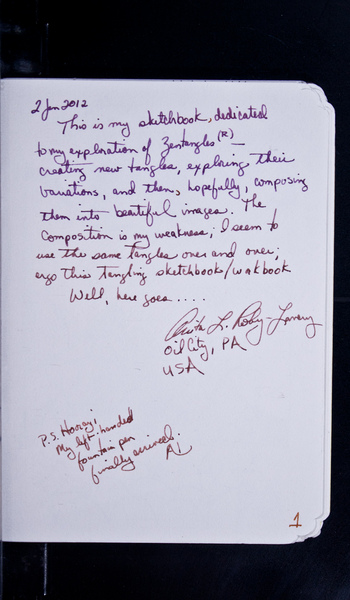 2 Jan 2012
This is my sketchbook, dedicated
to my exploration of Zentangles(R) —
creating new tangles, exploring their
variations, and then, hopefully, composing
them into beautiful images. The
composition is my weakness; I seem to
use the same tangles over and over;
ergo this tangling sketchbook/workbook
Well, here goes....
Anita L. Roby-Lavery
Oil City, PA
USA
P.S. Hooray!
My left-handed
fountain pen
finally arrived.
1